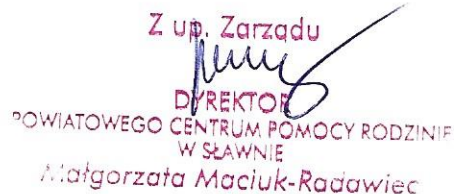 Z up. Zarządu
DYREKTOR
POWIATOWEGO CENTRUM POMOCY RODZINIE
W SŁAWNIE
Małgorzata Maciuk-Radawiec